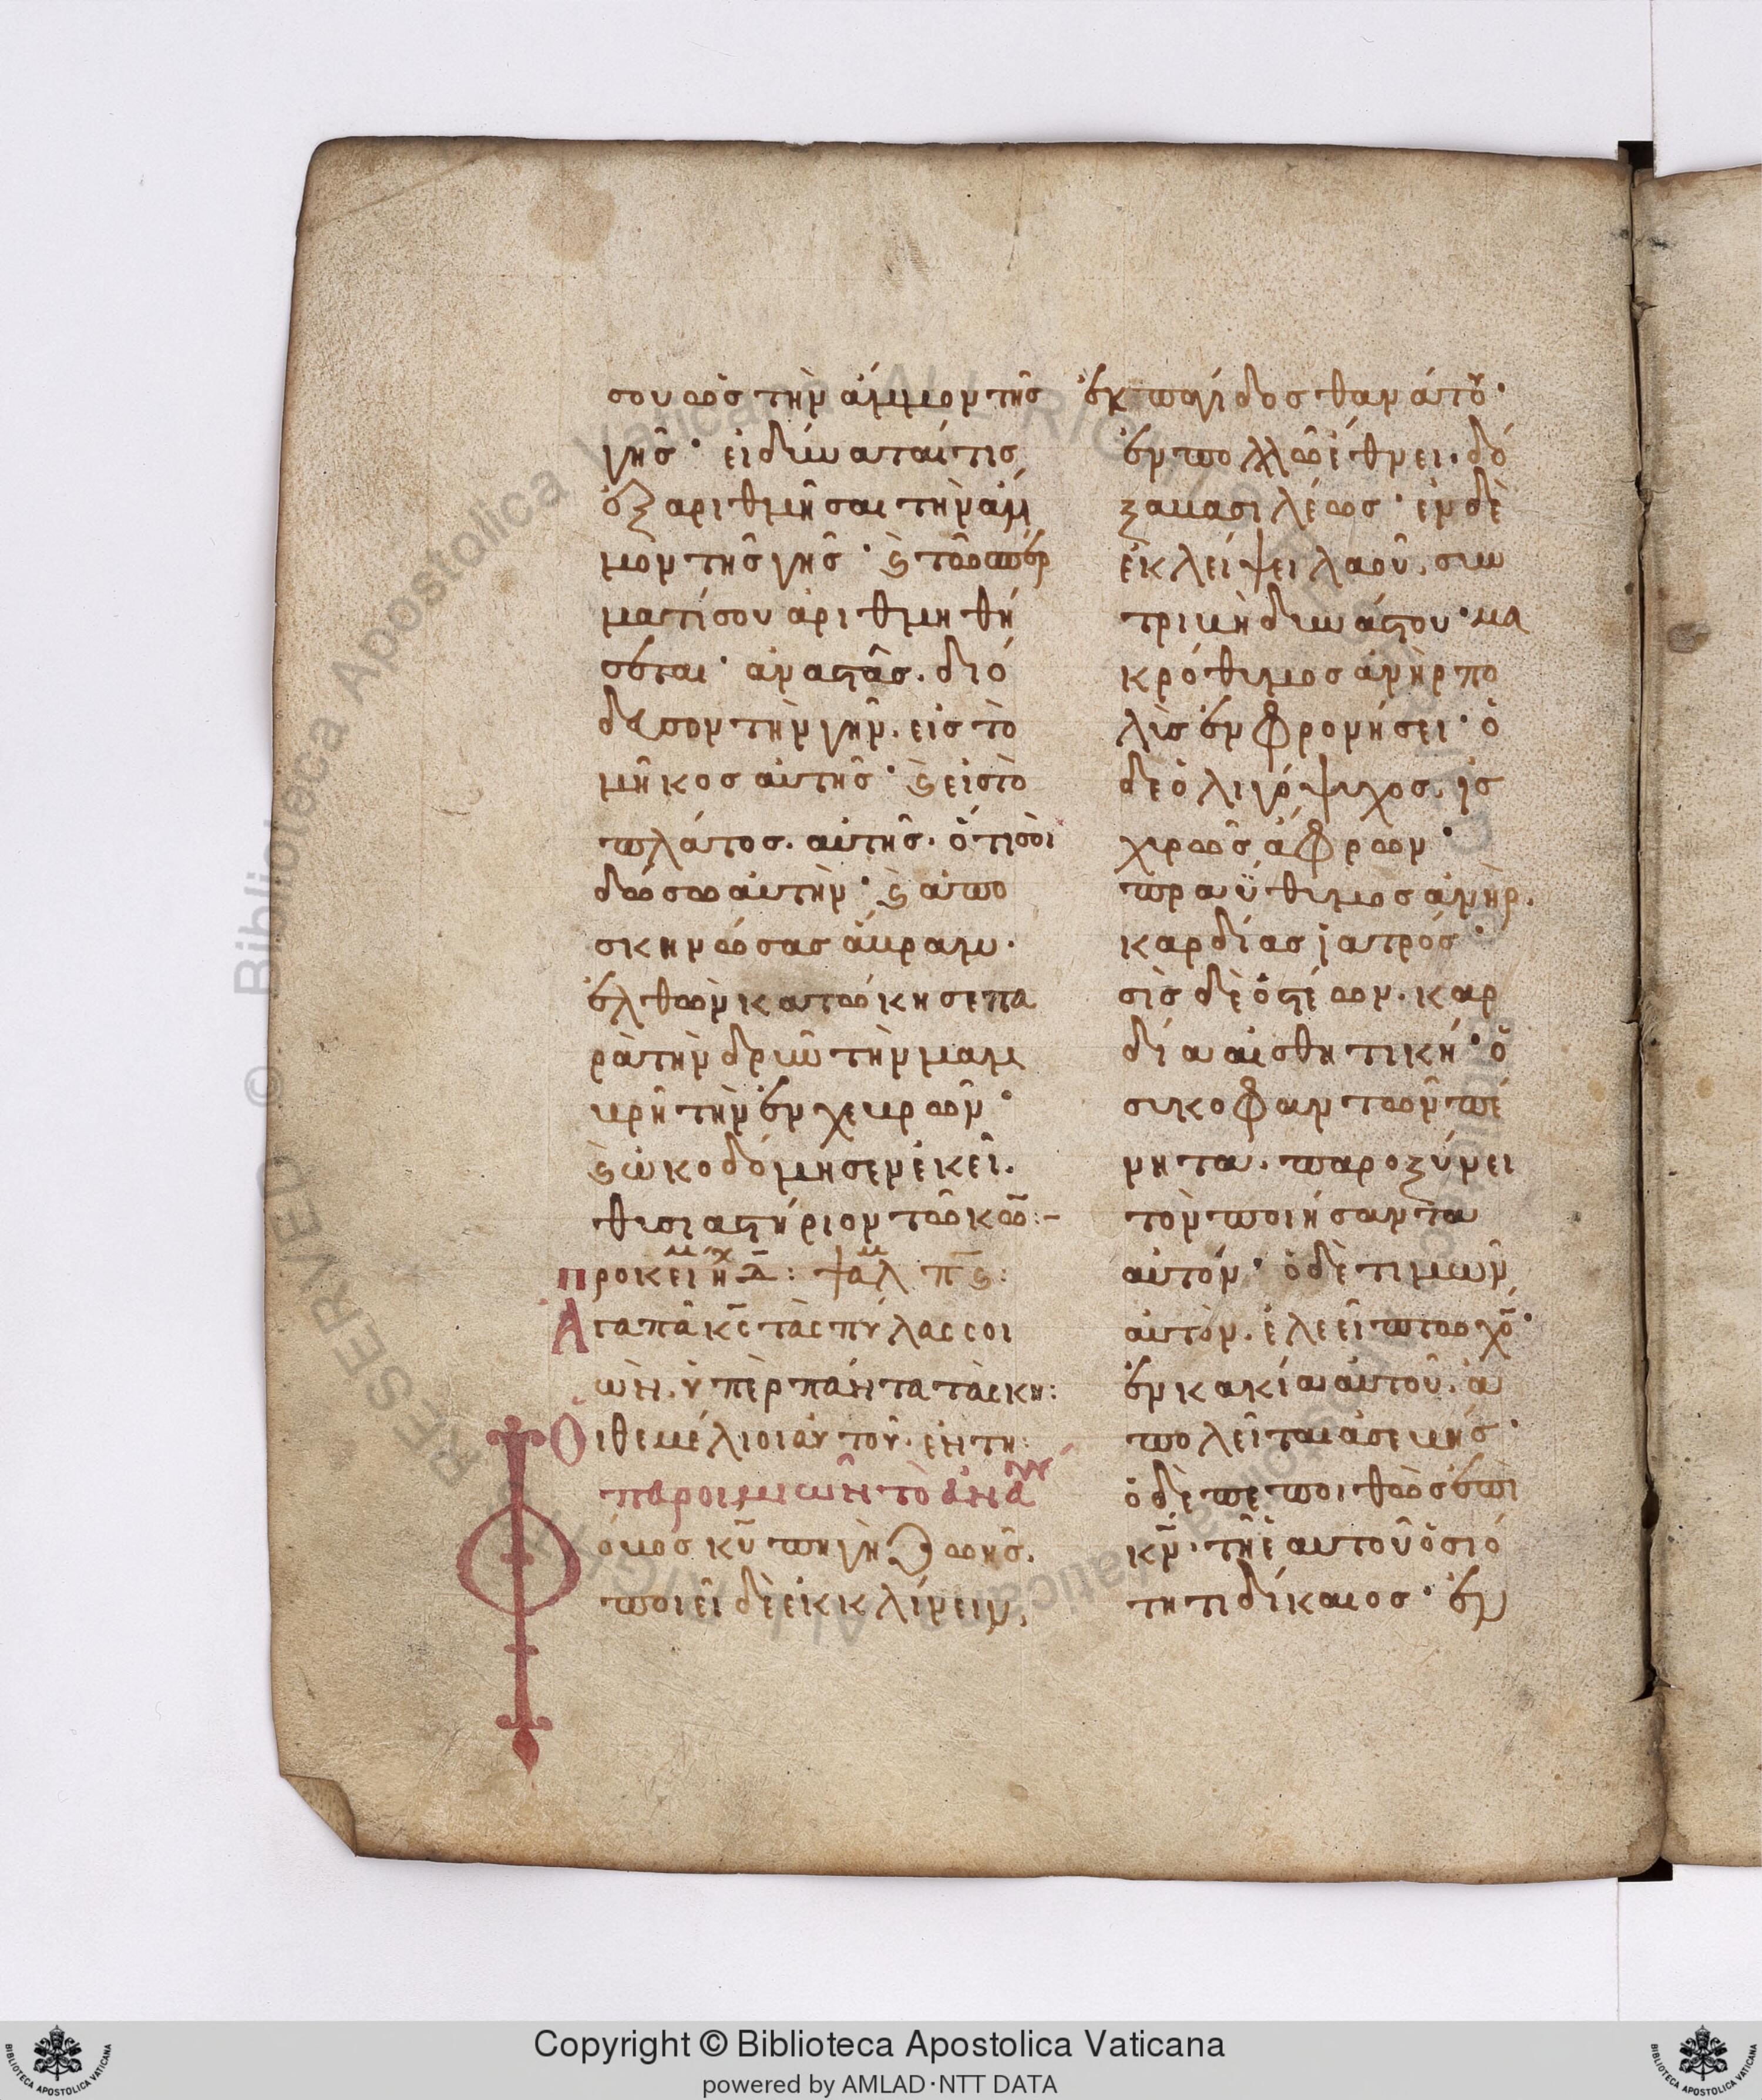 σου ὡς τὴν ἄμμον τῆς
γῆς· εἰ δύναταί τις
ἐξαριθμῆσαι τὴν ἄμ
μον τῆς γῆς· ϗ τῶ σπέρ
ματί σου ἀριθμηθή
σεται· ἀναστὰς. διό
δευσον τὴν γῆν. εἰς τὸ
μῆκος αὐτῆς· ϗ εἰς τὸ
πλάτος. αὐτῆς. ὅτι σοὶ
δώσω αὐτὴν· ϗ ἀπο
σκηνώσας ἄβραμ.
ἐλθὼν κατώκησε πα
ρὰ τὴν δρῦν τὴν μαμ
βρῆ τὴν ἐν χεβρῶν·
ϗ ὠκοδόμησεν ἐκεῖ.
θυσιαστήριον τῶ κω:–
προκειμ ηχ δ: ψαλμ πϛ:
Αγαπᾶ κς τὰς πύλας σι
ὼν. ὑπὲρ πάντα τὰ σκη:
Οἱ θεμέλιοι αὐτοῦ. ἐν τη:
παροιμιῶν τὸ ἀνάγν
όβος κυ πηγὴ ζωῆς.
ποιεῖ δὲ ἐκκλίνειν,
ἐκ παγίδος θανάτου·
ἐν πολλῶ ἔθνει. δό
ξα βασιλέως· ἐν δὲ
ἐκλείψει λαοῦ. συν
τριβὴ δυνάστου· μα
κρόθυμος ἀνὴρ πο
λὺς ἐν φρονήσει· ὁ
δὲ ὀλιγόψυχος. ἰσ
χυρῶς ἄφρων·
πραΰθυμος ἀνὴρ.
καρδίας ἰατρός·
σὴς δὲ ὀστέων. καρ
δία αἰσθητική· ὁ
συκοφαντῶν πέ
νητα. παροξύνει
τὸν ποιήσαντα
αὐτόν· ὁ δὲ τιμῶν
αὐτὸν. ἐλεεῖ πτωχό·
ἐν κακία αὐτοῦ. ἀ
πολεῖται ἀσεβής·
ὁ δὲ πεποιθὼς ἐπὶ
κν. τῆ ἑαυτοῦ ὁσιό
τητι δίκαιος· ἐν
Copyright © Biblioteca Apostolica Vaticana
powered by AMLAD·NTT DATA